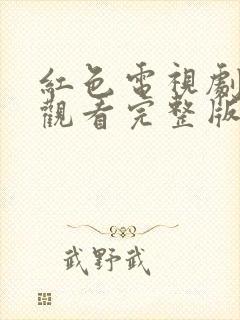 紅色電視劇
觀看完整版
武野武